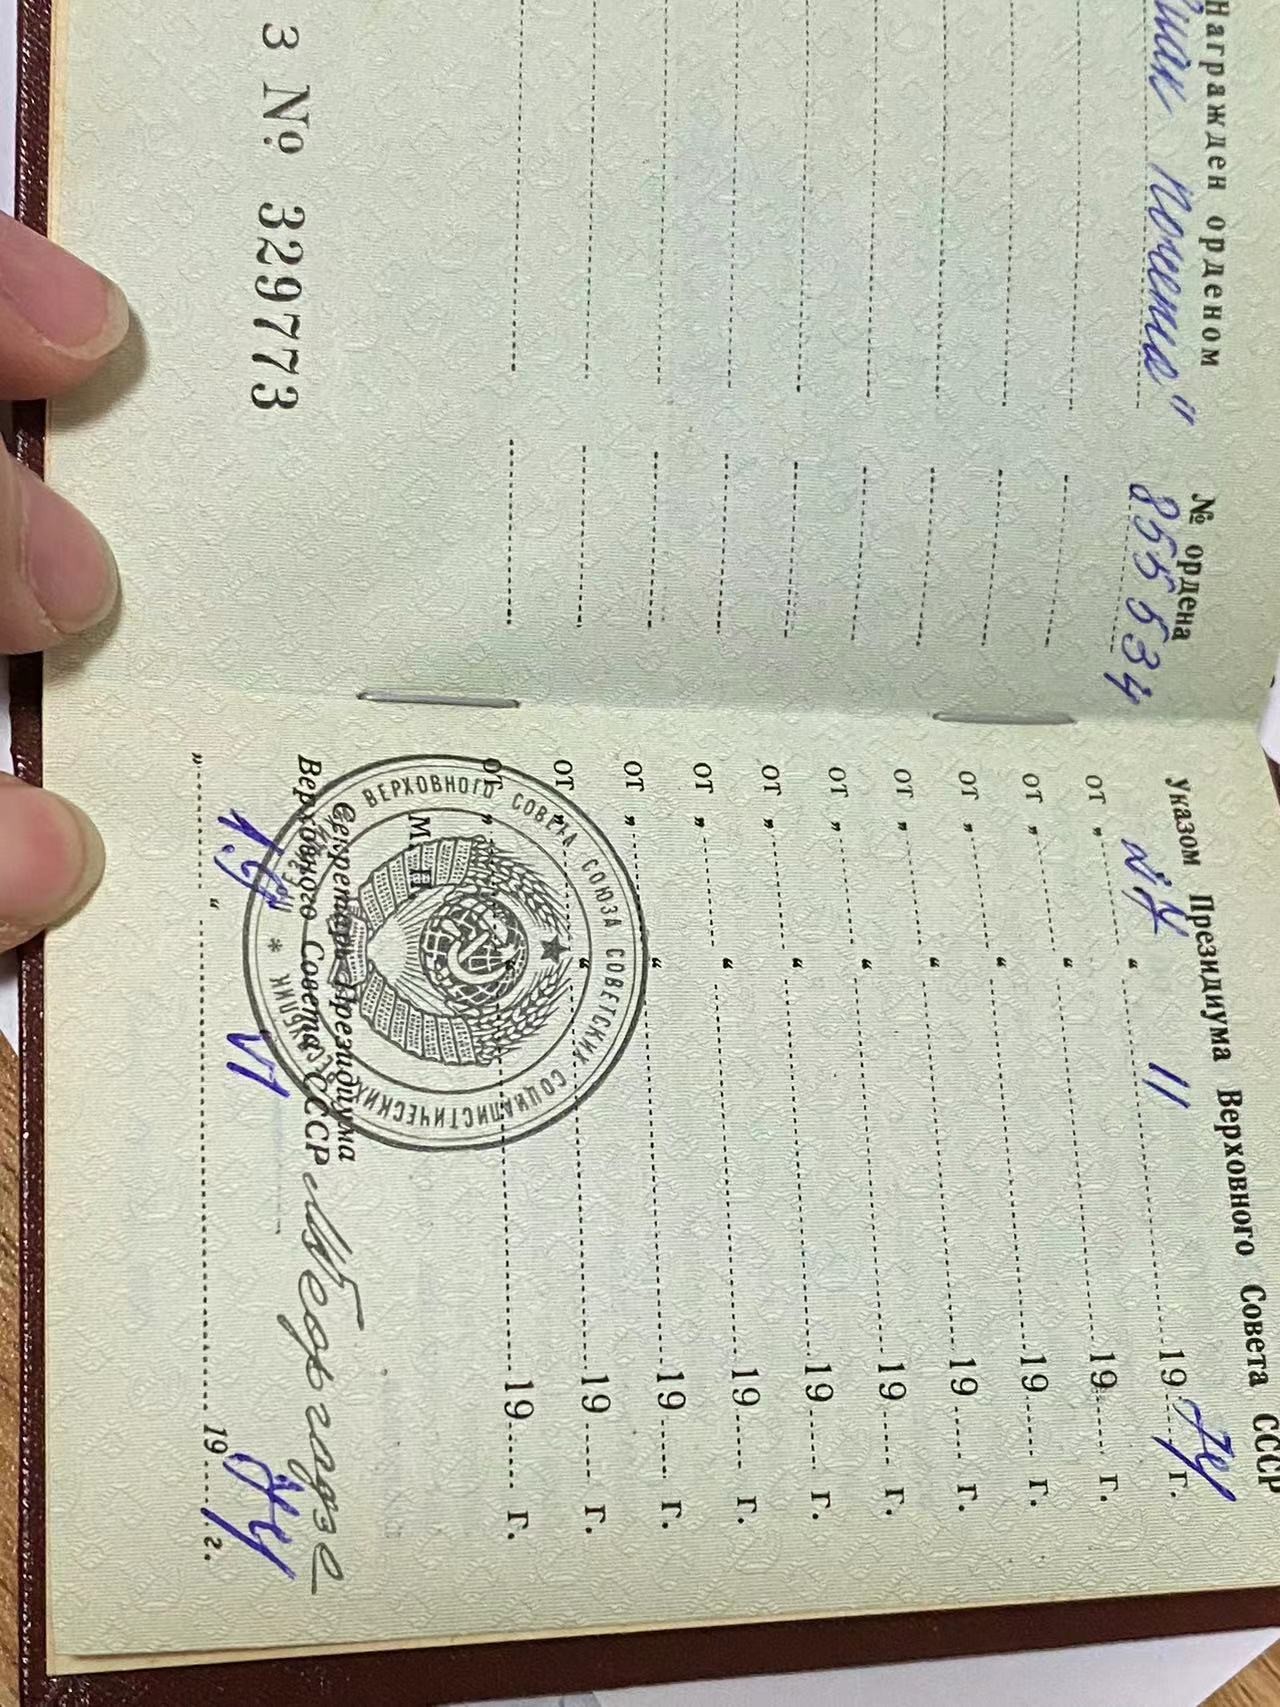 Награжден орденом № ордена
Знак Почета" 855534
З № 329773
Указом Президиума Верховного Совета СССР
от „ “ 11 19 г.
от „ “ 19 г.
от „ “ 19 г.
от „ “ 19 г.
от „ “ 19 г.
от „ “ 19 г.
от „ “ 19 г.
от „ “ 19 г.
от „ “ 19 г.
от „ “ 19 г.
М. П.
Секретарь Президиума
Верховного Совета СССР
„ “ VI 19 г.
ВЕРХОВНОГО СОВЕТА СОЮЗА СОВЕТСКИХ СОЦИАЛИСТИЧЕСКИХ РЕСПУБЛИК *